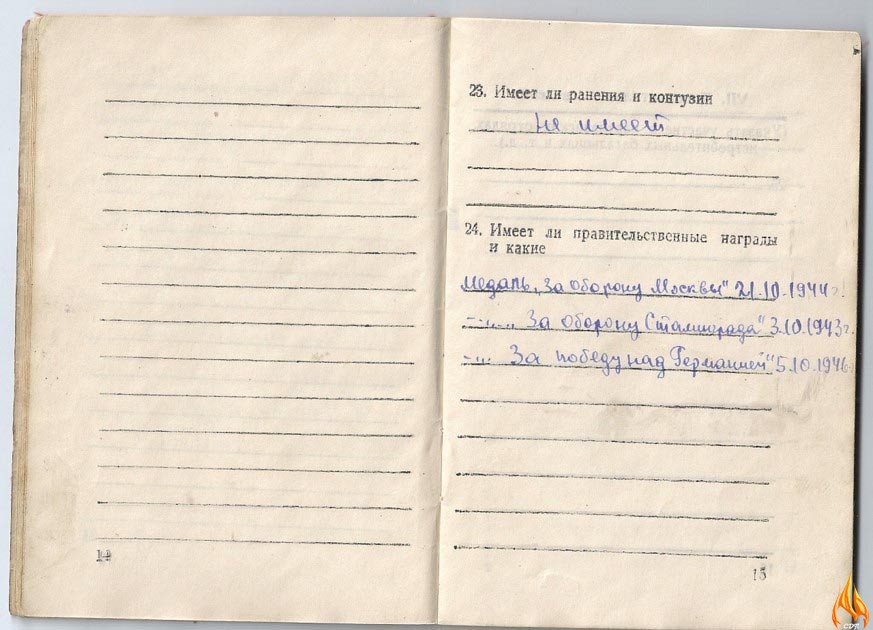 23. Имеет ли ранения и контузии
не имеет
24. Имеет ли правительственные награды
и какие
медаль „За оборону Москвы" 21.10.1944г.
-„- „За оборону Сталинграда" 3.10.1943г.
-„- За победу над Германией" 5.10.1946
14
15
CDR